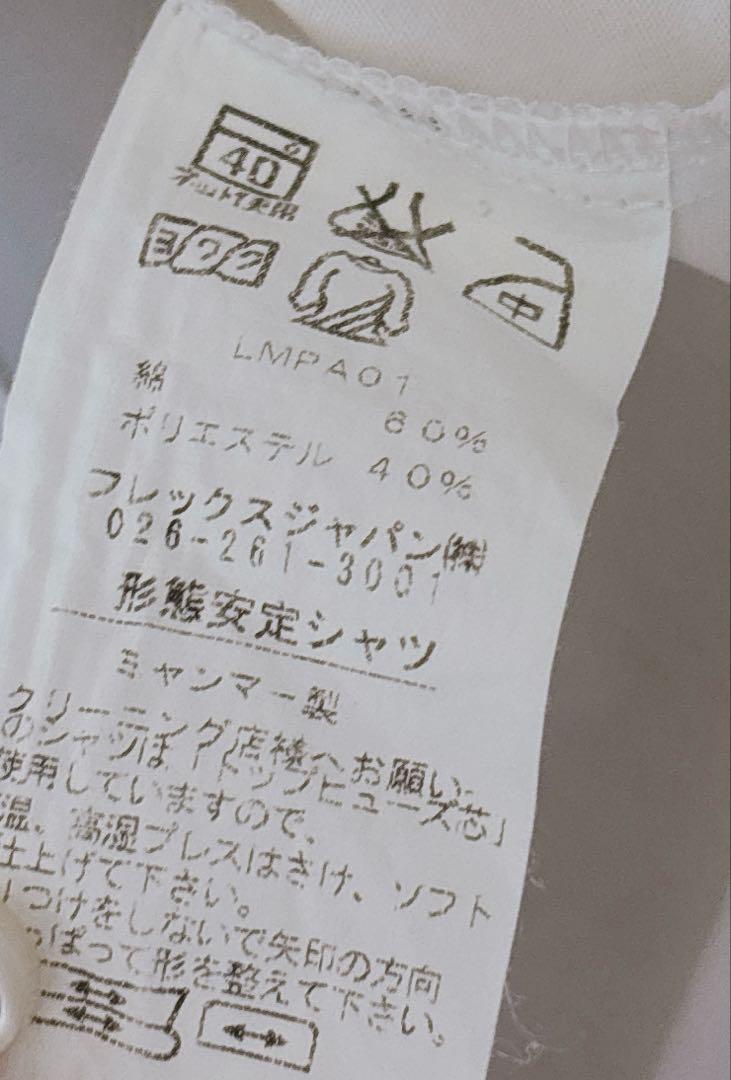 40
ネット使用
ヨワク
中
LMPA01
綿 60%
ポリエステル 40%
フレックスジャパン㈱
026-261-3001
形態安定シャツ
ミャンマー製
クリーニング店様へお願い
のシャツは「トップヒューズ芯」
使用していますので、
温、高湿プレスはさけ、ソフト
仕上げて下さい。
つけをしないで矢印の方向
っぱって形を整えて下さい。